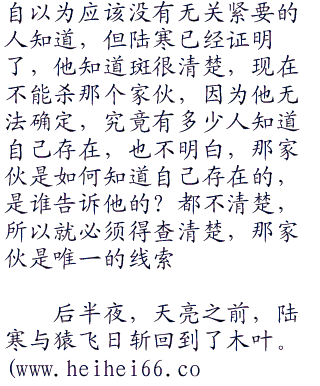 自以为应该没有无关紧要的
人知道，但陆寒已经证明
了，他知道斑很清楚，现在
不能杀那个家伙，因为他无
法确定，究竟有多少人知道
自己存在，也不明白，那家
伙是如何知道自己存在的，
是谁告诉他的？都不清楚，
所以就必须得查清楚，那家
伙是唯一的线索
后半夜，天亮之前，陆
寒与猿飞日斩回到了木叶。
(www.heihei66.co